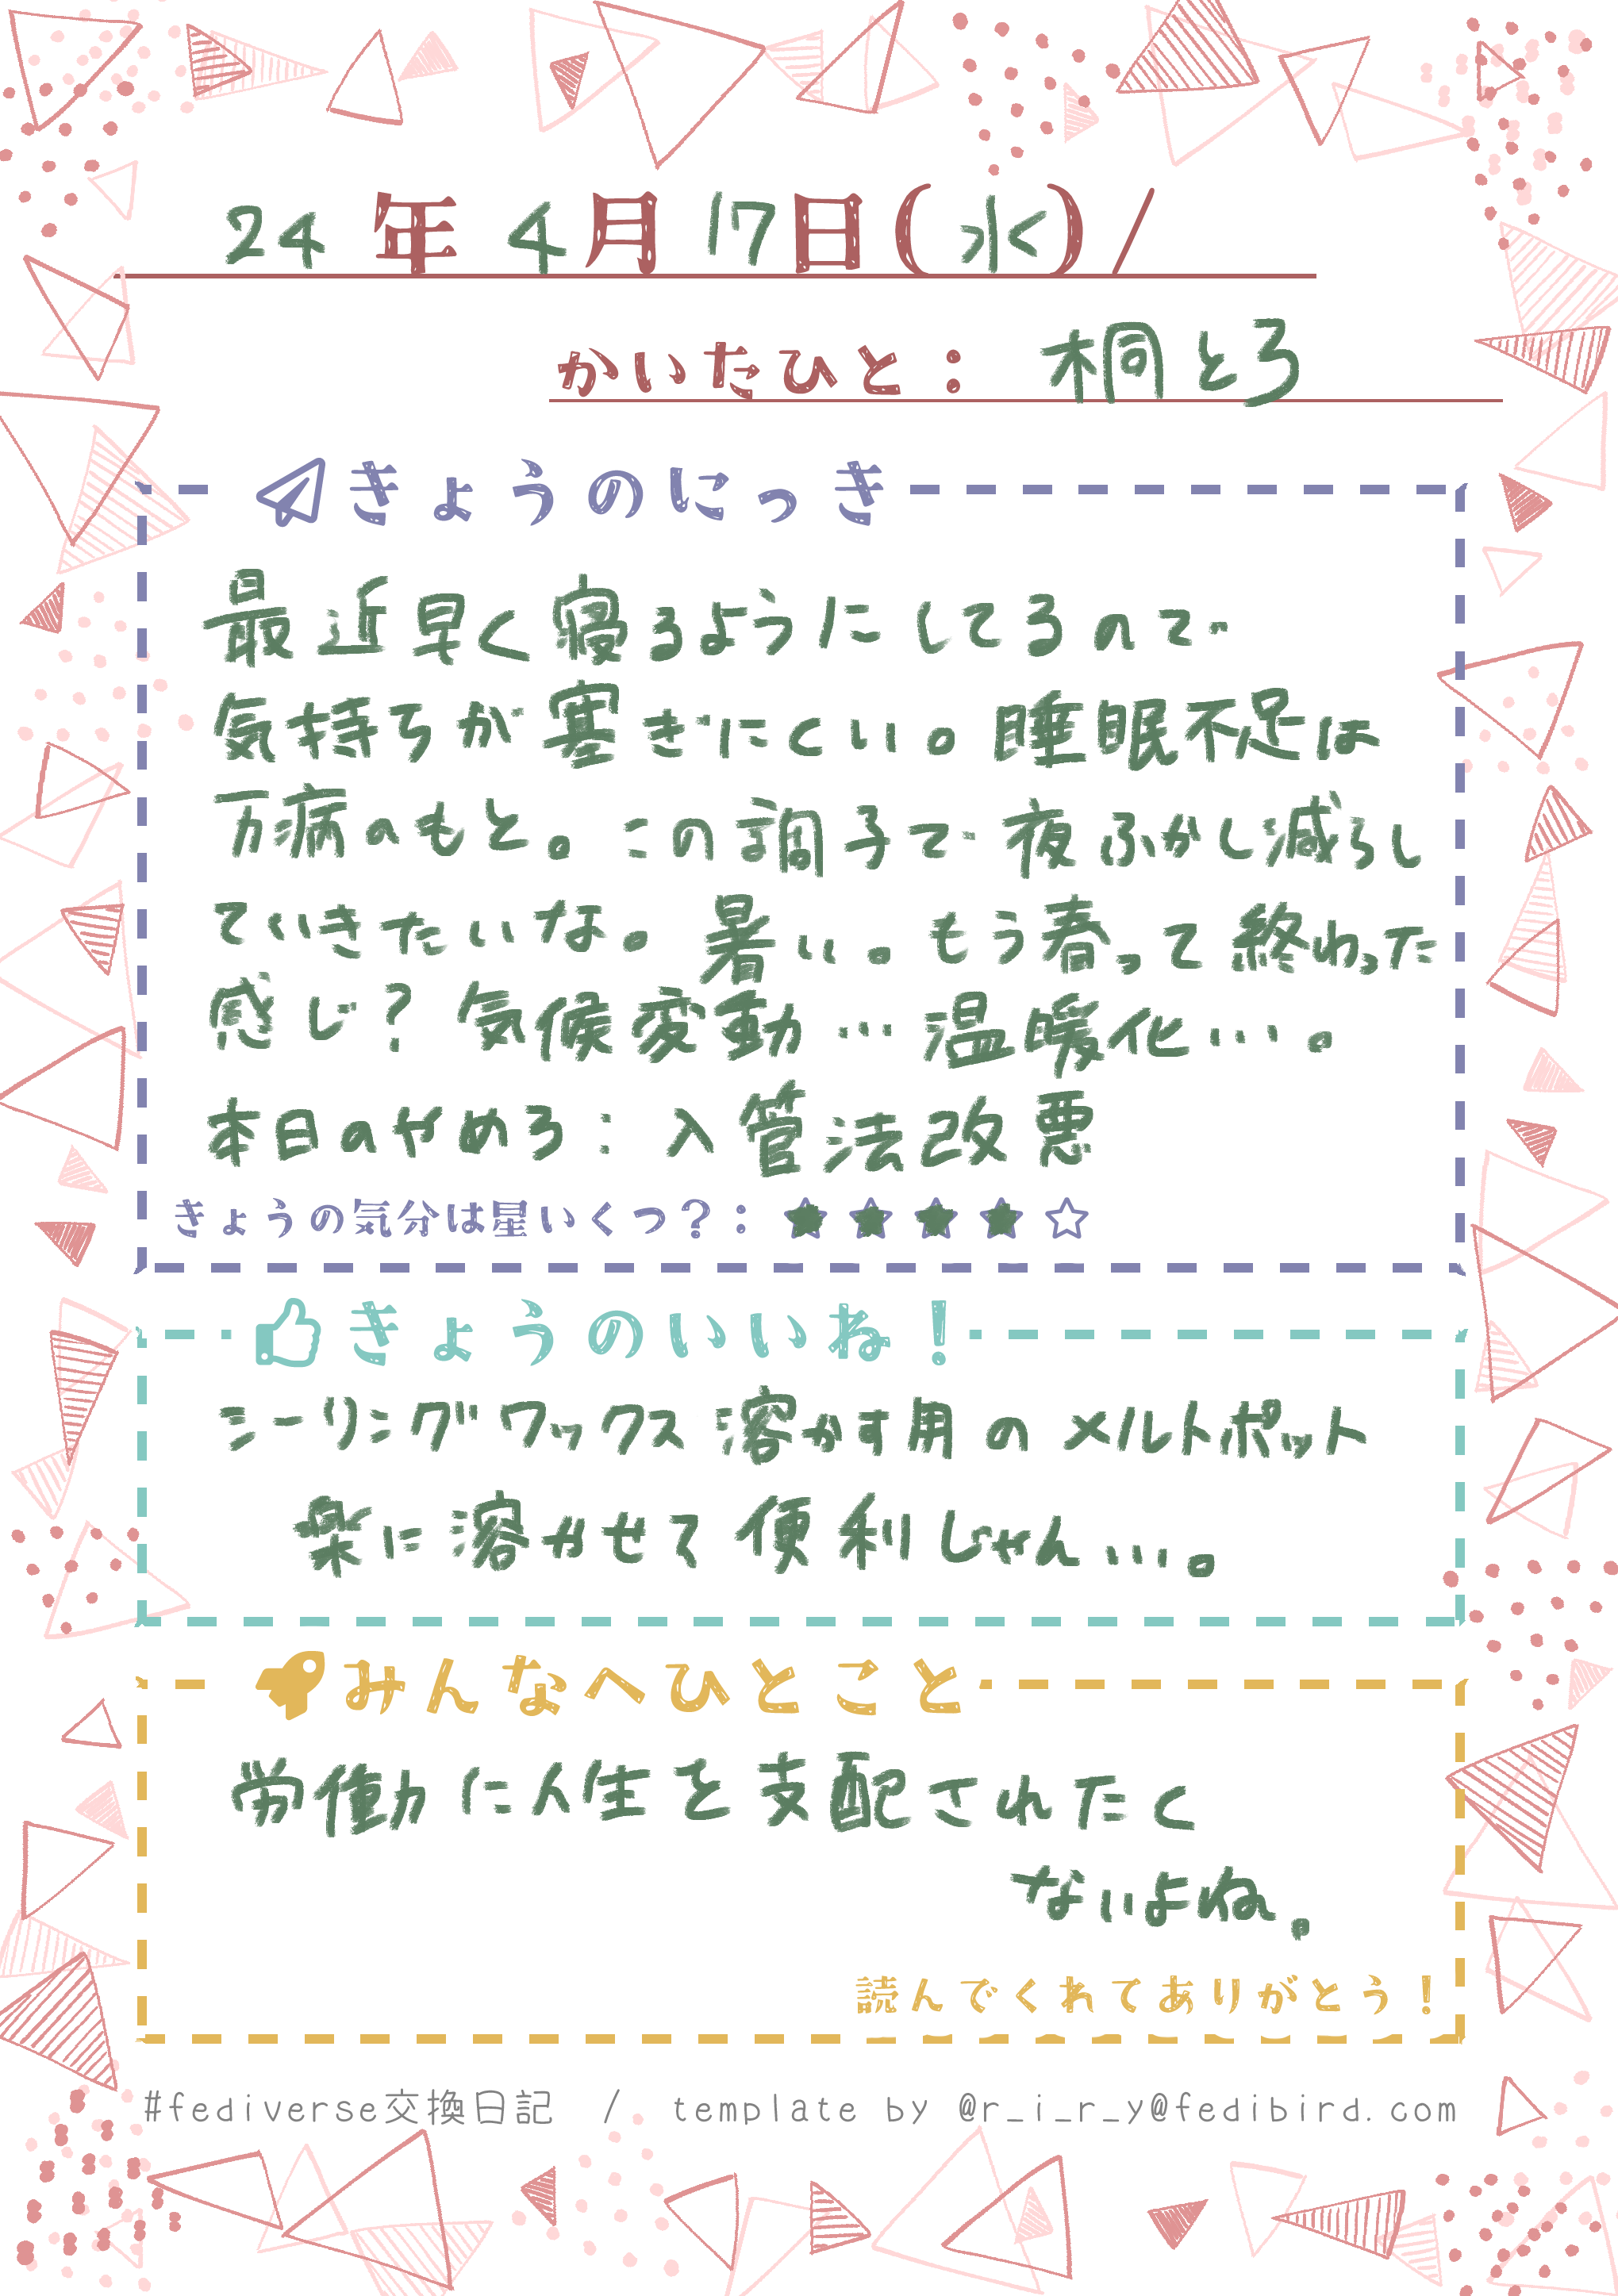 24年4月17日(水)/
かいたひと：桐とろ
きょうのにっき
最近早く寝るようにしてるので
気持ちが塞ぎにくい。睡眠不足は
万病のもと。この調子で夜ふかし減らし
ていきたいな。暑い。もう春って終わった
感じ？気候変動…温暖化…。
本日のやめろ：入管法改悪
きょうの気分は星いくつ？：★★★★☆
きょうのいいね！
シーリングワックス溶かす用のメルトポット
楽に溶かせて便利じゃん…。
みんなへひとこと
労働に人生を支配されたく
ないよね。
読んでくれてありがとう！
#fediverse交換日記 / template by @r_i_r_y@fedibird.com